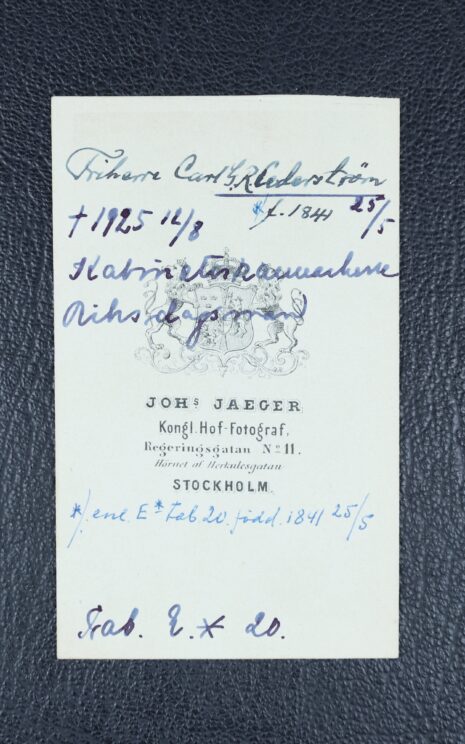 Friherre Carl G. R. Cederström
*) f. 1841 25/5
† 1925 12/8
Kabinettskammarherre
Riksdagsman
JOHS JAEGER
Kongl. Hof-Fotograf,
Regeringsgatan No 11.
Hörnet af Herkulesgatan
STOCKHOLM.
*) enl. E* Tab 20. född. 1841 25/5
Tab. E. * 20.